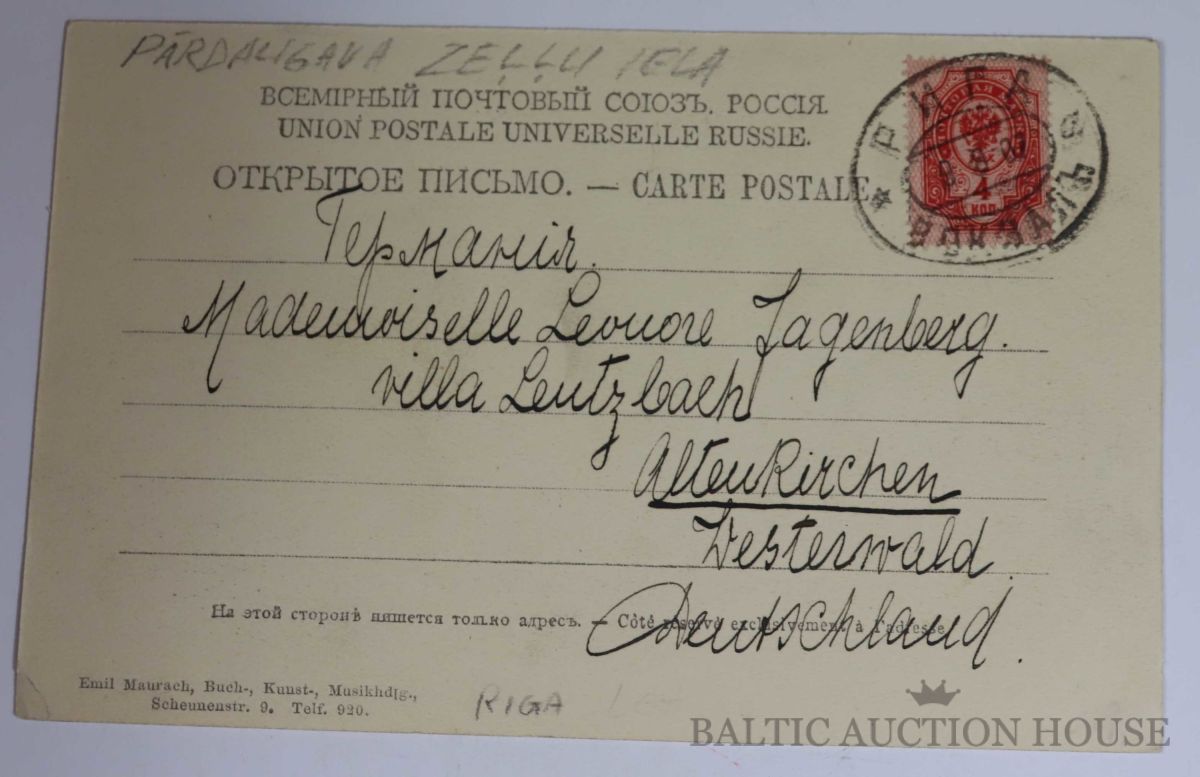 PĀRDAUGAVA ZEĻĻU IELA
ВСЕМІРНЫЙ ПОЧТОВЫЙ СОЮЗЪ. РОССІЯ.
UNION POSTALE UNIVERSELLE RUSSIE.
ОТКРЫТОЕ ПИСЬМО. — CARTE POSTALE
РИГА
ВОКЗАЛЪ
4
КОП
Германія.
Mademoiselle Leonore Jagenberg.
villa Leutzbach
Altenkirchen
Westerwald.
Deutschland.
На этой сторонѣ пишется только адресъ. — Côté réservé exclusivement à l'adresse
Emil Maurach, Buch-, Kunst-, Musikhdlg.,
Scheunenstr. 9. Telf. 920.
RIGA
BALTIC AUCTION HOUSE